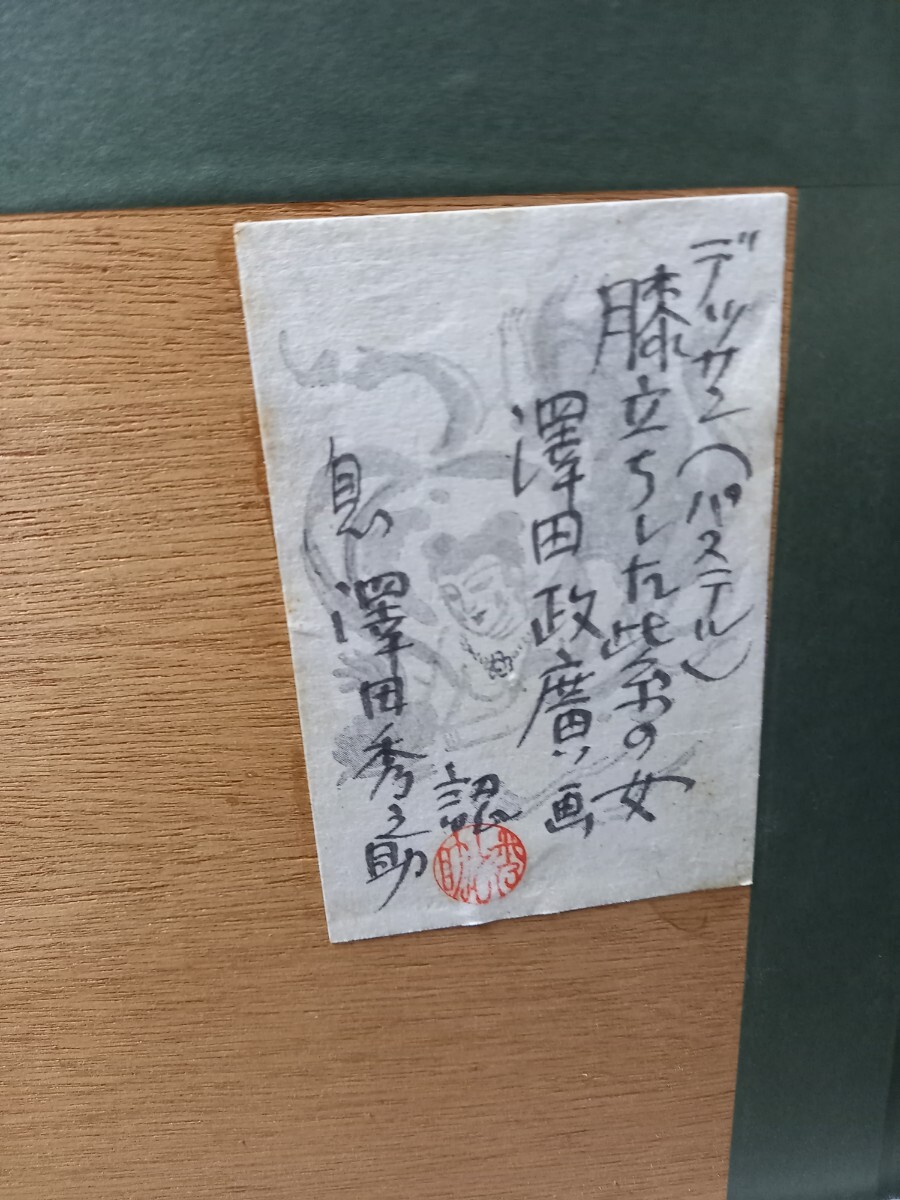 デッサン（パステル）
膝立ちした紫の女
澤田政廣画
認
息 澤田秀之助